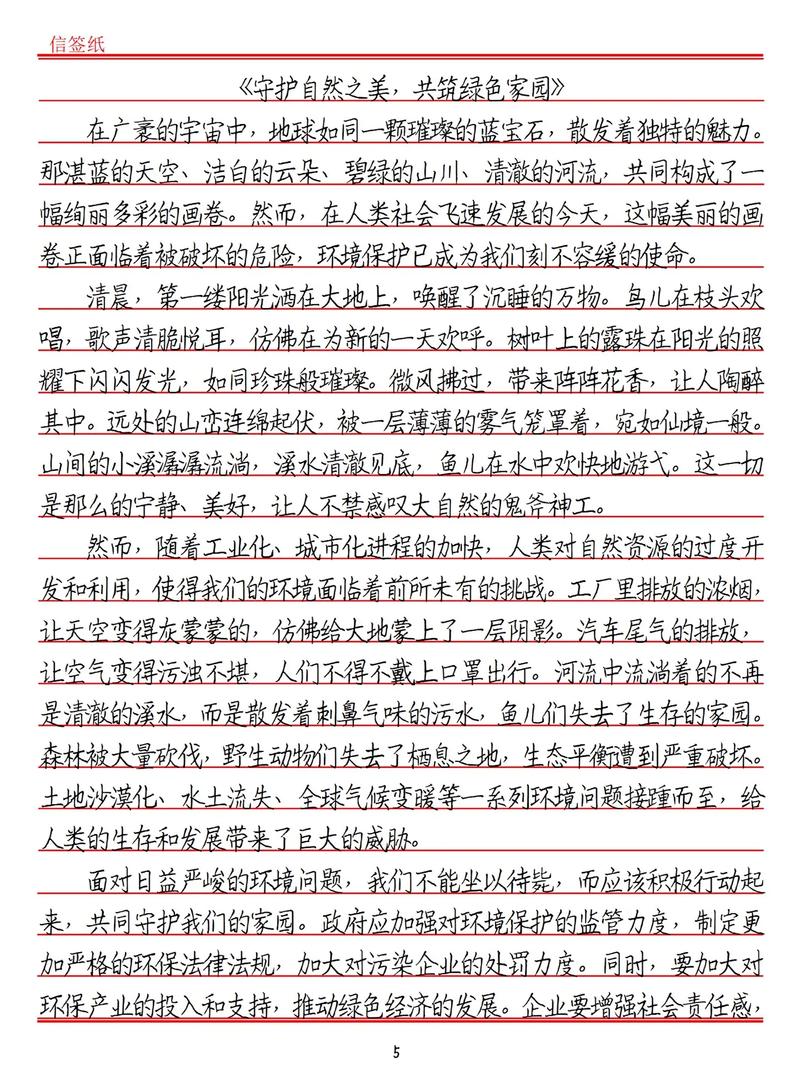 信签纸
《守护自然之美，共筑绿色家园》
在广袤的宇宙中，地球如同一颗璀璨的蓝宝石，散发着独特的魅力。
那湛蓝的天空、洁白的云朵、碧绿的山川、清澈的河流，共同构成了一
幅绚丽多彩的画卷。然而，在人类社会飞速发展的今天，这幅美丽的画
卷正面临着被破坏的危险，环境保护已成为我们刻不容缓的使命。
清晨，第一缕阳光洒在大地上，唤醒了沉睡的万物。鸟儿在枝头欢
唱，歌声清脆悦耳，仿佛在为新的一天欢呼。树叶上的露珠在阳光的照
耀下闪闪发光，如同珍珠般璀璨。微风拂过，带来阵阵花香，让人陶醉
其中。远处的山峦连绵起伏，被一层薄薄的雾气笼罩着，宛如仙境一般。
山间的小溪潺潺流淌，溪水清澈见底，鱼儿在水中欢快地游弋。这一切
是那么的宁静、美好，让人不禁感叹大自然的鬼斧神工。
然而，随着工业化、城市化进程的加快，人类对自然资源的过度开
发和利用，使得我们的环境面临着前所未有的挑战。工厂里排放的浓烟，
让天空变得灰蒙蒙的，仿佛给大地蒙上了一层阴影。汽车尾气的排放，
让空气变得污浊不堪，人们不得不戴上口罩出行。河流中流淌着的不再
是清澈的溪水，而是散发着刺鼻气味的污水，鱼儿们失去了生存的家园。
森林被大量砍伐，野生动物们失去了栖息之地，生态平衡遭到严重破坏。
土地沙漠化、水土流失、全球气候变暖等一系列环境问题接踵而至，给
人类的生存和发展带来了巨大的威胁。
面对日益严峻的环境问题，我们不能坐以待毙，而应该积极行动起
来，共同守护我们的家园。政府应加强对环境保护的监管力度，制定更
加严格的环保法律法规，加大对污染企业的处罚力度。同时，要加大对
环保产业的投入和支持，推动绿色经济的发展。企业要增强社会责任感，
5